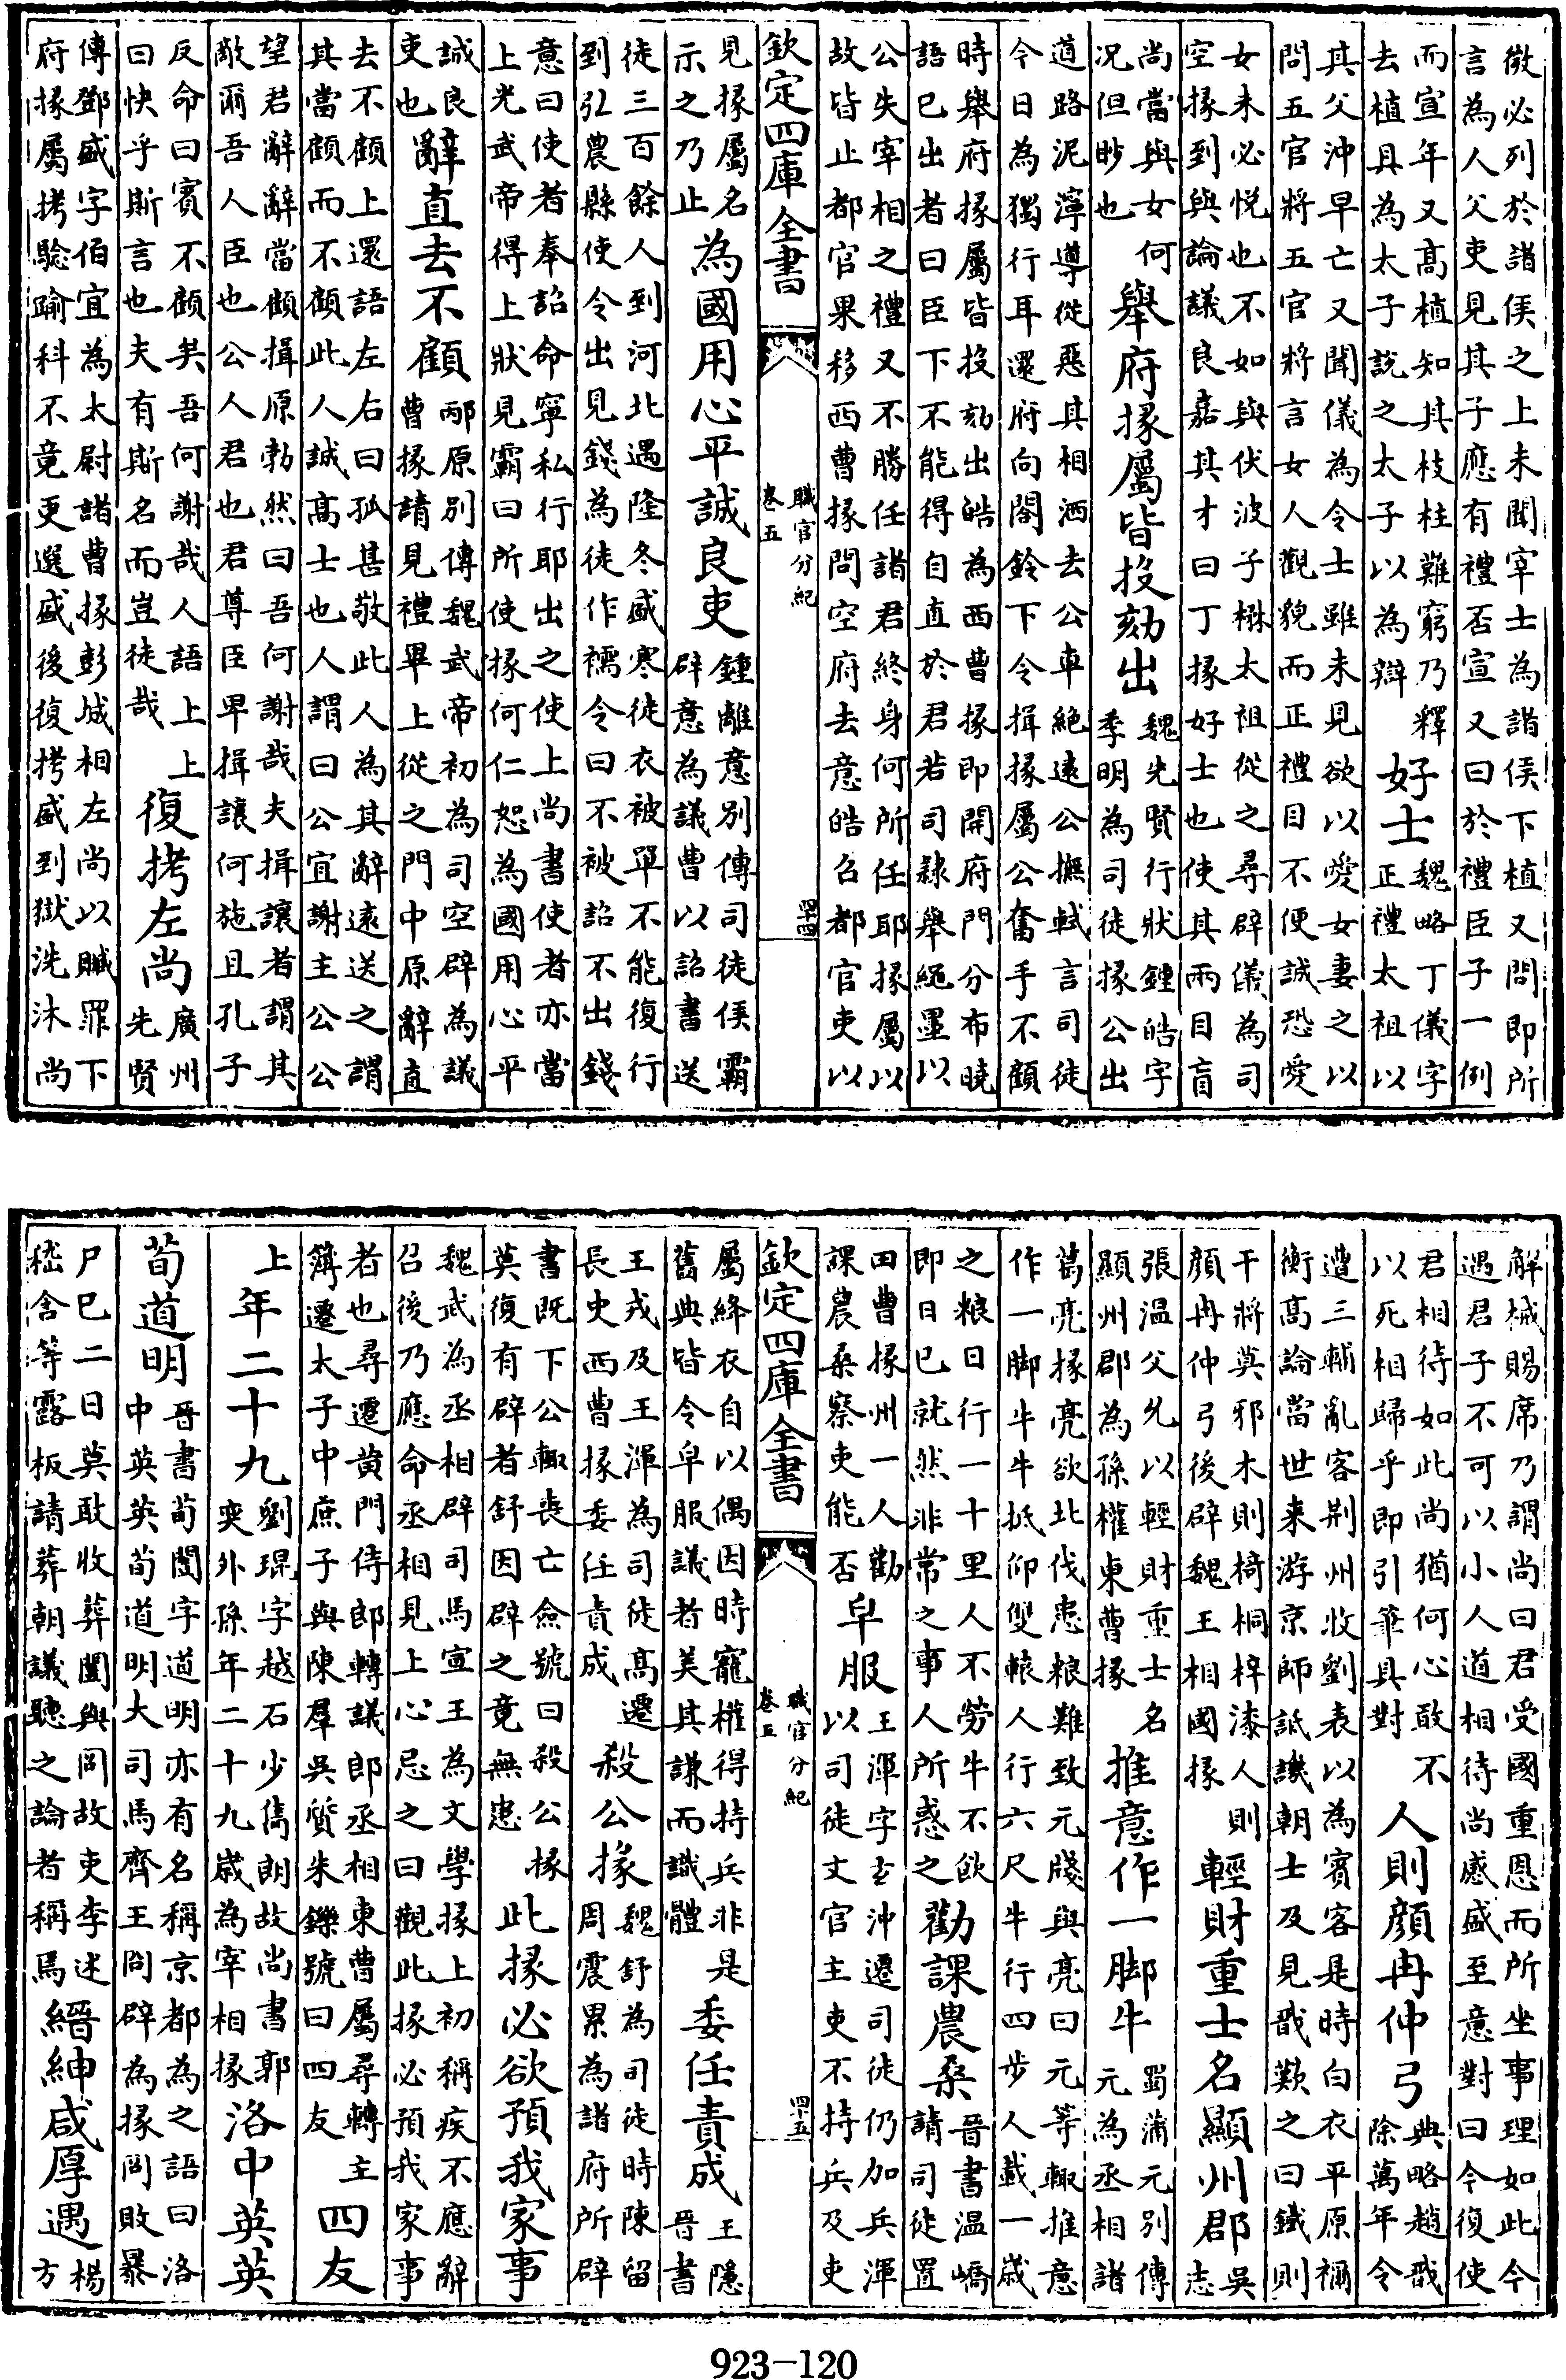 微必列於諸侯之上未聞宰士為諸侯下植又問即所
言為人父吏見其子應有禮否宣又曰於禮臣子一例
而宣年又高植知其枝柱難窮乃釋
去植具為太子說之太子以為辯
好士
魏略丁儀字
正禮太祖以
其父沖早亡又聞儀為令士雖未見欲以愛女妻之以
問五官將五官將言女人觀貌而正禮目不便誠恐愛
女未必悅也不如與伏波子楙太祖從之尋辟儀為司
空掾到與論議良嘉其才曰丁掾好士也使其兩目盲
尚當與女何
况但眇也
舉府掾屬皆投劾出
魏先賢行狀鍾皓字
季明為司徒掾公出
道路泥濘導從惡其相洒去公車絕遠公撫軾言司徒
今日為獨行耳還府向閤鈴下令揖掾屬公奮手不顧
時舉府掾屬皆投劾出皓為西曹掾即開府門分布曉
語已出者曰臣下不能得自直於君若司隸舉繩墨以
公失宰相之禮又不勝任諸君終身何所任耶掾屬以
故皆止都官果移西曹掾問空府去意皓召都官吏以
欽定四庫全書
職官分紀
卷五
四十四
見掾屬名
示之乃止
為國用心平誠良吏
鍾離意別傳司徒侯霸
辟意為議曹以詔書送
徒三百餘人到河北遇隆冬盛寒徒衣被單不能復行
到弘農縣使令出見錢為徒作襦令曰不被詔不出錢
意曰使者奉詔命寧私行耶出之使上尚書使者亦當
上光武帝得上狀見霸曰所使掾何仁恕為國用心平
誠良
吏也
辭直去不顧
邴原別傳魏武帝初為司空辟為議
曹掾請見禮畢上從之門中原辭直
去不顧上還語左右曰孤甚敬此人為其辭遠送之謂
其當顧而不顧此人誠高士也人謂曰公宜謝主公公
望君辭辭當顧揖原勃然曰吾何謝哉夫揖讓者謂其
敵爾吾人臣也公人君也君尊臣卑揖讓何施且孔子
反命曰賓不顧矣吾何謝哉人語上上
曰快乎斯言也夫有斯名而豈徒哉
復拷左尚
廣州
先賢
傳鄧盛字伯宜為太尉諸曹掾彭城相左尚以贓罪下
府掾屬拷驗踰科不竟更選盛後復拷盛到獄洗沐尚
解械賜席乃謂尚曰君受國重恩而所坐事理如此今
遇君子不可以小人道相待尚感盛至意對曰今復使
君相待如此尚猶何心敢不
以死相歸乎即引筆具對
人則顏冉仲弓
典略趙戩
除萬年令
遭三輔亂客荆州收劉表以為賓客是時白衣平原禰
衡高論當世来游京師詆譏朝士及見戩歎之曰鐵則
干將莫邪木則椅桐梓漆人則
顏冉仲弓後辟魏王相國掾
輕財重士名顯州郡
吳
志
張温父允以輕財重士名
顯州郡為孫權東曹掾
推意作一脚牛
蜀蒲元別傳
元為丞相諸
葛亮掾亮欲北伐患粮難致元牋與亮曰元等輙推意
作一脚牛牛抵仰雙轅人行六尺牛行四步人載一歲
之粮日行一十里人不勞牛不飲
即日已就然非常之事人所惑之
勸課農桑
晉書温嶠
請司徒置
田曹掾州一人勸
課農桑察吏能否
皁服
王渾字玄沖遷司徒仍加兵渾
以司徒文官主吏不持兵及吏
欽定四庫全書
職官分紀
卷五
四十五
屬絳衣自以偶因時寵權得持兵非是
舊典皆令皁服議者美其謙而識體
委任責成
王隱
晉書
王戎及王渾為司徒高遷
長史西曹掾委任責成
殺公掾
魏舒為司徒時陳留
周震累為諸府所辟
書既下公輙喪亡僉號曰殺公掾
莫復有辟者舒因辟之竟無患
此掾必欲預我家事
魏武為丞相辟司馬宣王為文學掾上初稱疾不應辭
召後乃應命丞相見上心忌之曰觀此掾必預我家事
者也尋遷黄門侍郎轉議郎丞相東曹屬尋轉主
簿遷太子中庶子與陳羣吳質朱鑠號曰四友
四友
上
年二十九
劉琨字越石少雋朗故尚書郭
奕外孫年二十九歲為宰相掾
洛中英英
荀道明
晉書荀闓字道明亦有名稱京都為之語曰洛
中英英荀道明大司馬齊王冏辟為掾冏敗暴
尸巳二日莫敢收葬闓與冏故吏李述
嵇含等露板請葬朝議聽之論者稱焉
縉紳咸厚遇
楊
方
923—120